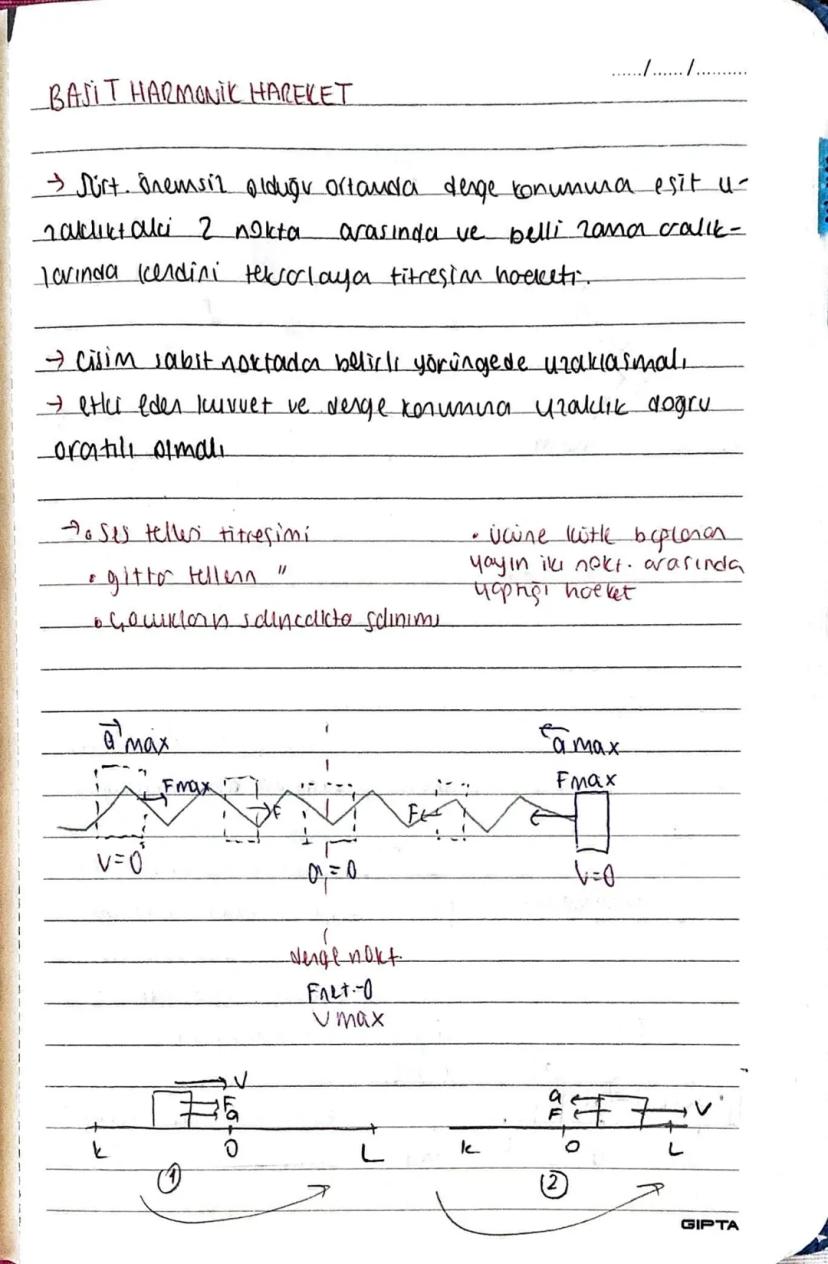 ....../....../..........
BASİT HARMONİK HAREKET
→ Sürt. önemsiz olduğu ortamda denge konumuna eşit u-
zaklıktaki 2 nokta arasında ve belli zaman aralık-
larında kendini tekrarlayan titreşim hareketi.
→ Cisim sabit noktadan belirli yörüngede uzaklaşmalı
→ etki eden kuvvet ve denge konumuna uzaklık doğru
orantılı olmalı
→ • Ses telleri titreşimi
• gitar tellerin "
• Çocukların salıncakta salınımı
• ucuna kütle bağlanan
yayın iki nokt. arasında
yaptığı hareket
a max
Fmax
F
V=0
a=0
F
a max
Fmax
V=0
denge nokt.
Fnet=0
Vmax
V
F
a
K O L
①
a
F
V
K O L
②
GIPTA